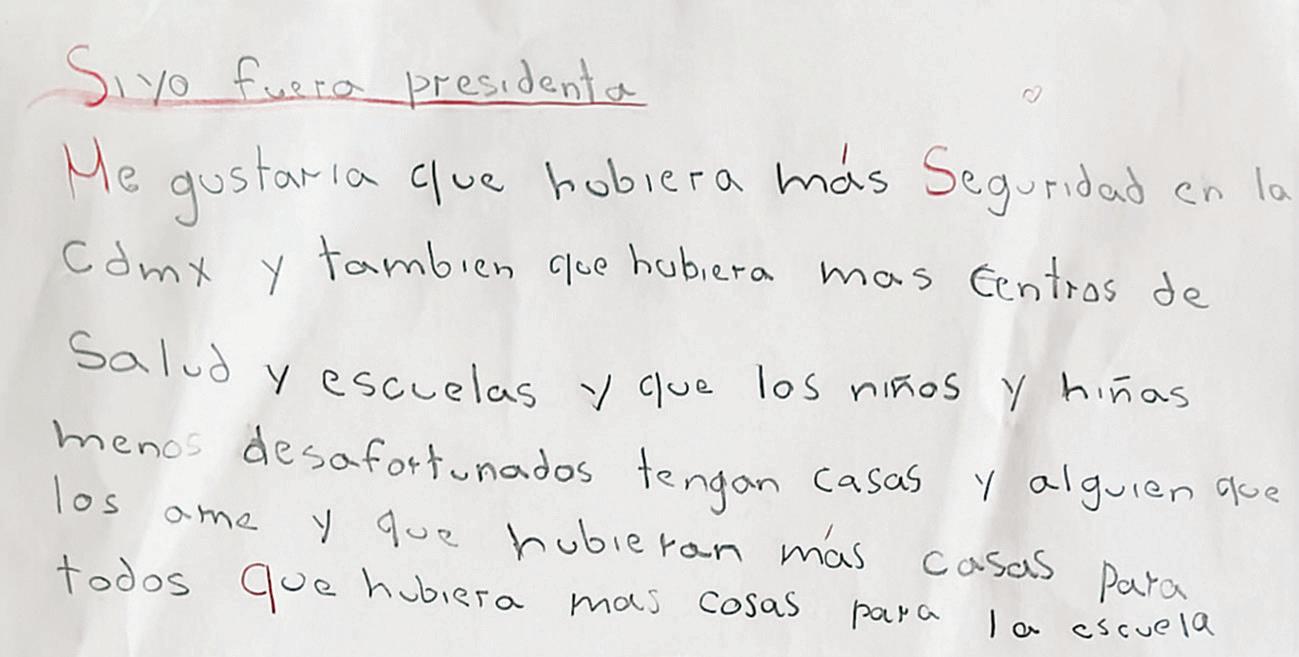 Si yo fuera presidenta
Me gustaria que hubiera más Seguridad en la
Cdmx y tambien que hubiera mas Centros de
Salud y escuelas y que los niños y niñas
menos desafortunados tengan casas y alguien que
los ame y que hubieran más casas para
todos que hubiera mas cosas para la escuela